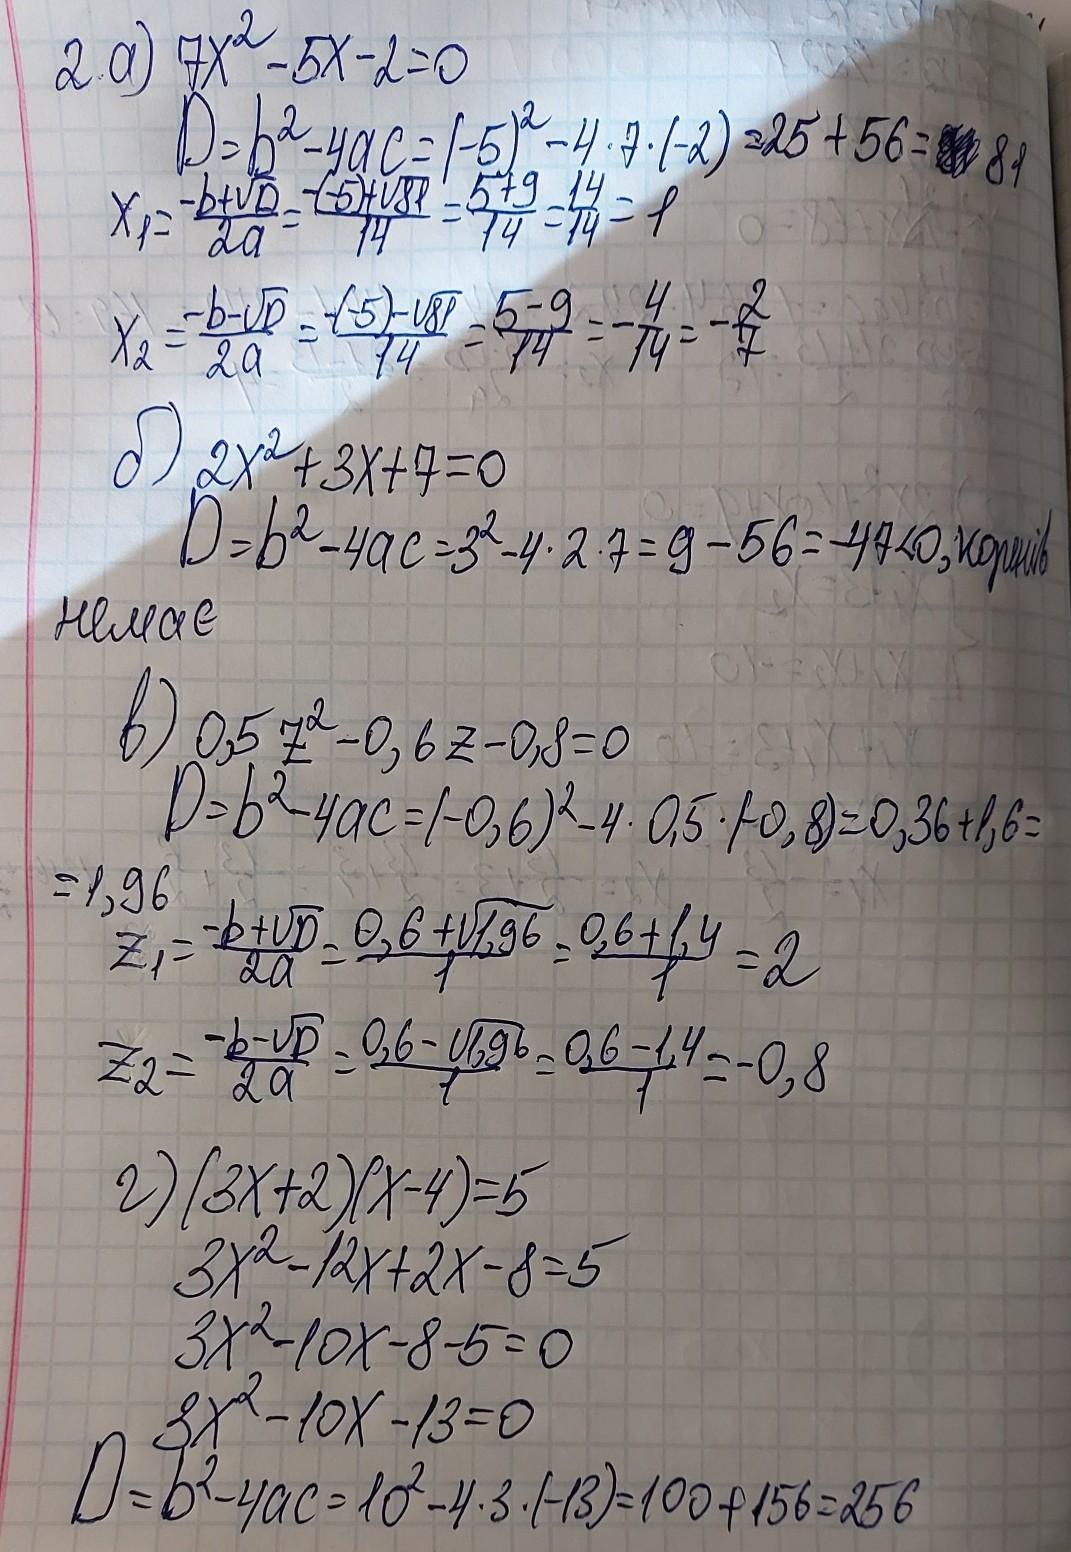 2.а) 7x² - 5x - 2 = 0
D = b² - 4ac = (-5)² - 4 · 7 · (-2) = 25 + 56 = 81
x₁ = (-b+√D)/2a = (-(-5)+√81)/14 = (5+9)/14 = 14/14 = 1
x₂ = (-b-√D)/2a = (-(-5)-√81)/14 = (5-9)/14 = -4/14 = -2/7
б) 2x² + 3x + 7 = 0
D = b² - 4ac = 3² - 4 · 2 · 7 = 9 - 56 = -47 < 0, коренів
немає
в) 0,5z² - 0,6z - 0,8 = 0
D = b² - 4ac = (-0,6)² - 4 · 0,5 · (-0,8) = 0,36 + 1,6 =
= 1,96
z₁ = (-b+√D)/2a = (0,6+√1,96)/1 = (0,6+1,4)/1 = 2
z₂ = (-b-√D)/2a = (0,6-√1,96)/1 = (0,6-1,4)/1 = -0,8
г) (3x+2)(x-4) = 5
3x² - 12x + 2x - 8 = 5
3x² - 10x - 8 - 5 = 0
3x² - 10x - 13 = 0
D = b² - 4ac = 10² - 4 · 3 · (-13) = 100 + 156 = 256